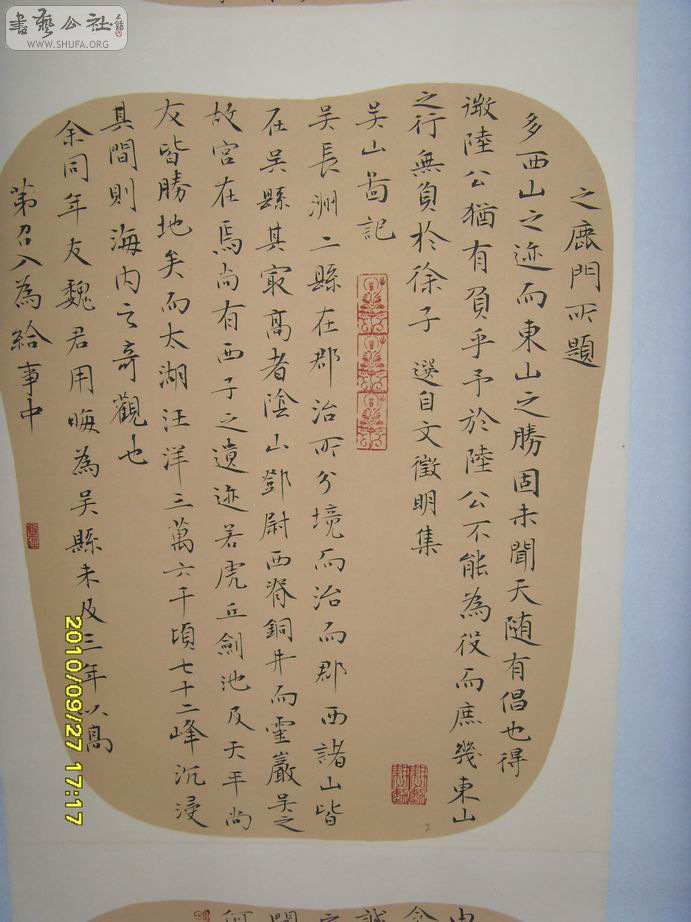 書藝公社
WWW.SHUFA.ORG
之鹿門所題
多西山之迹而東山之勝固未聞天随有倡也得
徵陸公猶有負乎予於陸公不能為役而庶幾東山
之行無負於徐子 選自文徵明集
吴山啚記
吴長洲二縣在郡治所分境而治而郡西諸山皆
在吴縣其冣高者陰山鄧尉西脊銅井而靈巖吴之
故宫在焉尚有西子之遺迹若虎丘劍池及天平尚
友皆勝地矣而太湖汪洋三萬六千頃七十二峰沉浸
其間則海内之奇觀也
余同年友魏君用晦為吴縣未及三年以高
第召入為給事中
2010/09/27 17:17